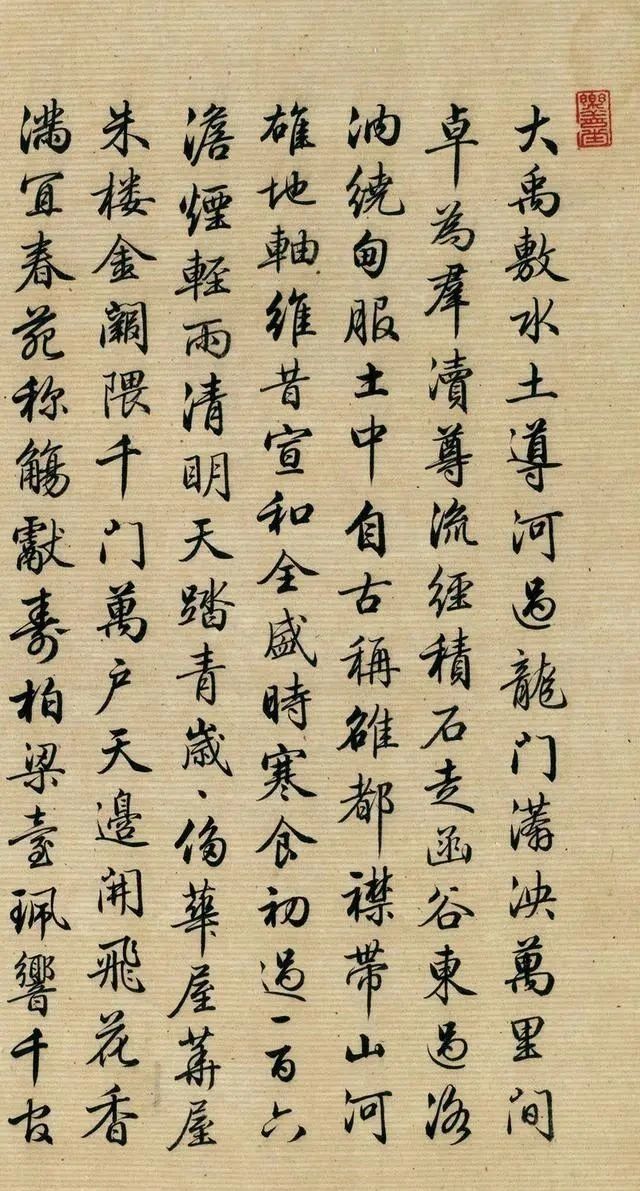 大禹敷水土導河過龍門漭泱萬里間
卓為羣瀆尊流經積石走函谷東過洛
汭繞甸服土中自古稱雄都襟帶山河
雄地軸維昔宣和全盛時寒食初過一百六
澹煙輕雨清明天踏青歲〻侈華屋華屋
朱楼金闕隈千門萬户天邊開飛花香
滿宜春苑称觴獻壽柏梁臺珮響千官